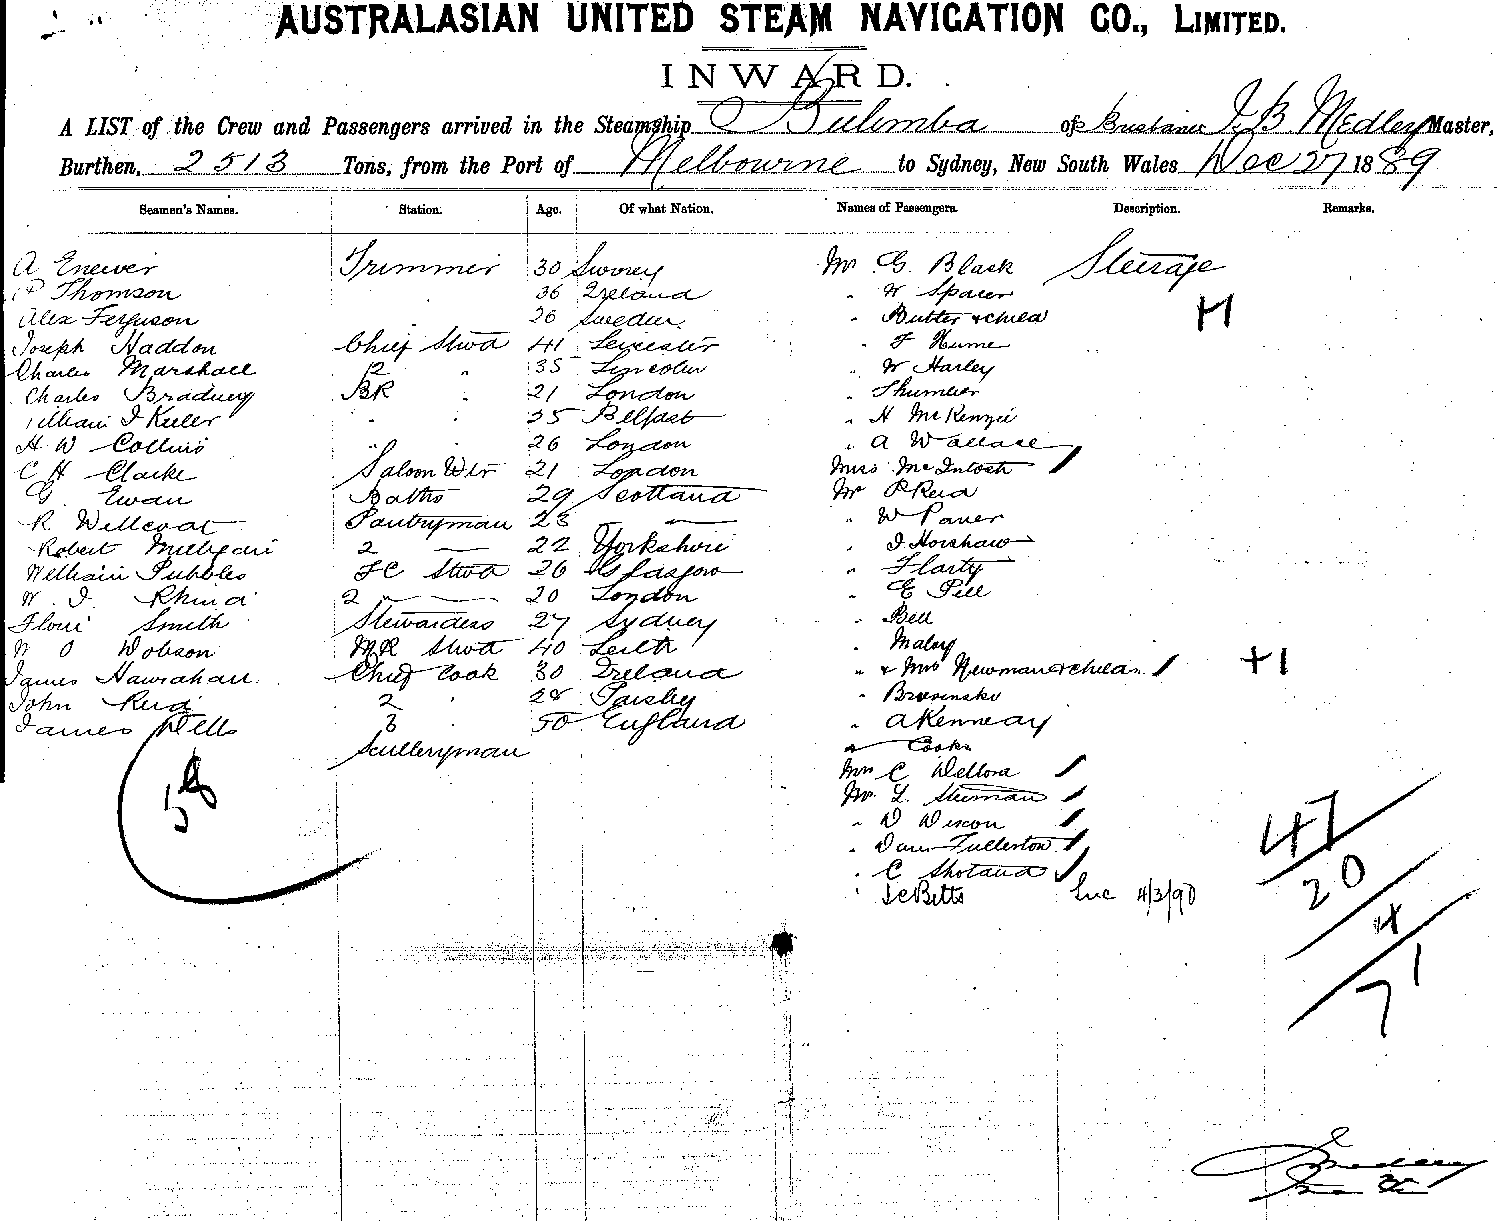 AUSTRALASIAN UNITED STEAM NAVIGATION CO., LIMITED.
INWARD.
A LIST of the Crew and Passengers arrived in the Steamship Bulimba of Brisbane J B Medley Master,
Burthen, 2513 Tons, from the Port of Melbourne to Sydney, New South Wales Dec 27 1889
Seamen's Names. Station. Age. Of what Nation. Names of Passengers. Description. Remarks.
A Trimmer 30 Mr G. Black Steerage
P Thomson 36 Ireland " W Spacer
Alex Ferguson 26 Sweden " Butler & child H
Joseph Haddon Chief Stwd 41 Leicester " F Hume
Charles Marshall 2 " 35 Lincoln " W Harley
Charles BR " 21 London "
William J " " 25 Belfast " H McKenzie
H W Collins " " 26 London " A Wallace
C H Clarke Saloon Wtr 21 London Miss McIntosh
G. Ewan Baths 29 Scotland Mr P Reid
R Wellcoat Pantryman 23 — " W
Robert 2 — 22 Yorkshire " J Horshaw
William FC Stwd 26 Glasgow " Flarty
W. J. 2 — 20 London " E Pill
Smith Stewardess 27 Sydney " Bell
W O Dobson MR Stwd 40 Leith " Maloy
James Hanrahan Chief Cook 30 Ireland " & Mrs Newman & child +1
John Reid 2 " 28 Paisley "
James Wells 3 50 England " A Kenneay
Sculleryman " Cooks
Mrs C
58 Mr L.
" D 47
" Fullerton
" C 20
" J C Betts 4/3/90
4
71